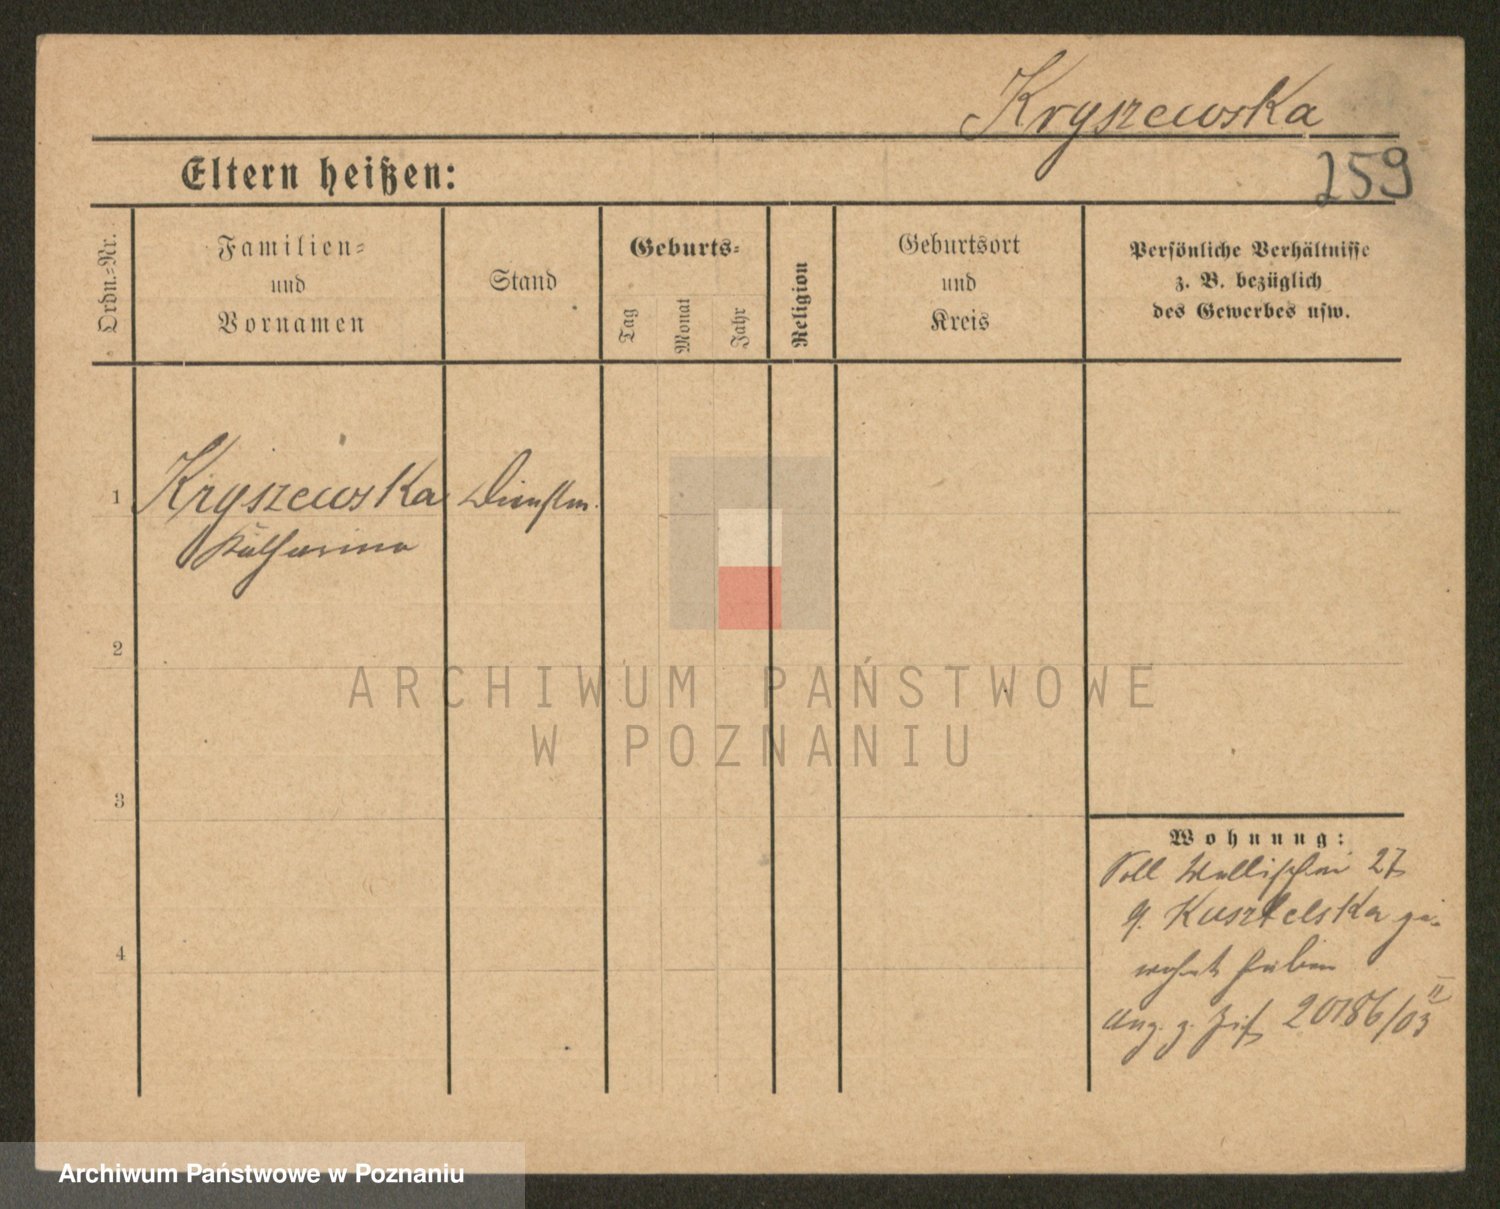 Kryszewska
Eltern heißen:
259
Ordn.=Nr.
Familien=
und
Vornamen
Stand
Geburts=
Tag
Monat
Jahr
Religion
Geburtsort
und
Kreis
Persönliche Verhältnisse
z. B. bezüglich
des Gewerbes usw.
1
Kryszewska
Dienstm.
Katharina
2
ARCHIWUM PAŃSTWOWE
W POZNANIU
3
Wohnung:
Soll Wallischei 27
4
wohnt haben
20186/03
II
Archiwum Państwowe w Poznaniu